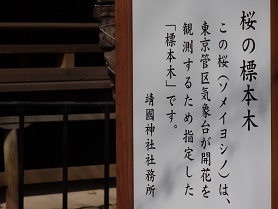 桜の標本木
この桜(ソメイヨシノ)は、
東京管区気象台が開花を
観測するため指定した
「標本木」です。
靖國神社社務所